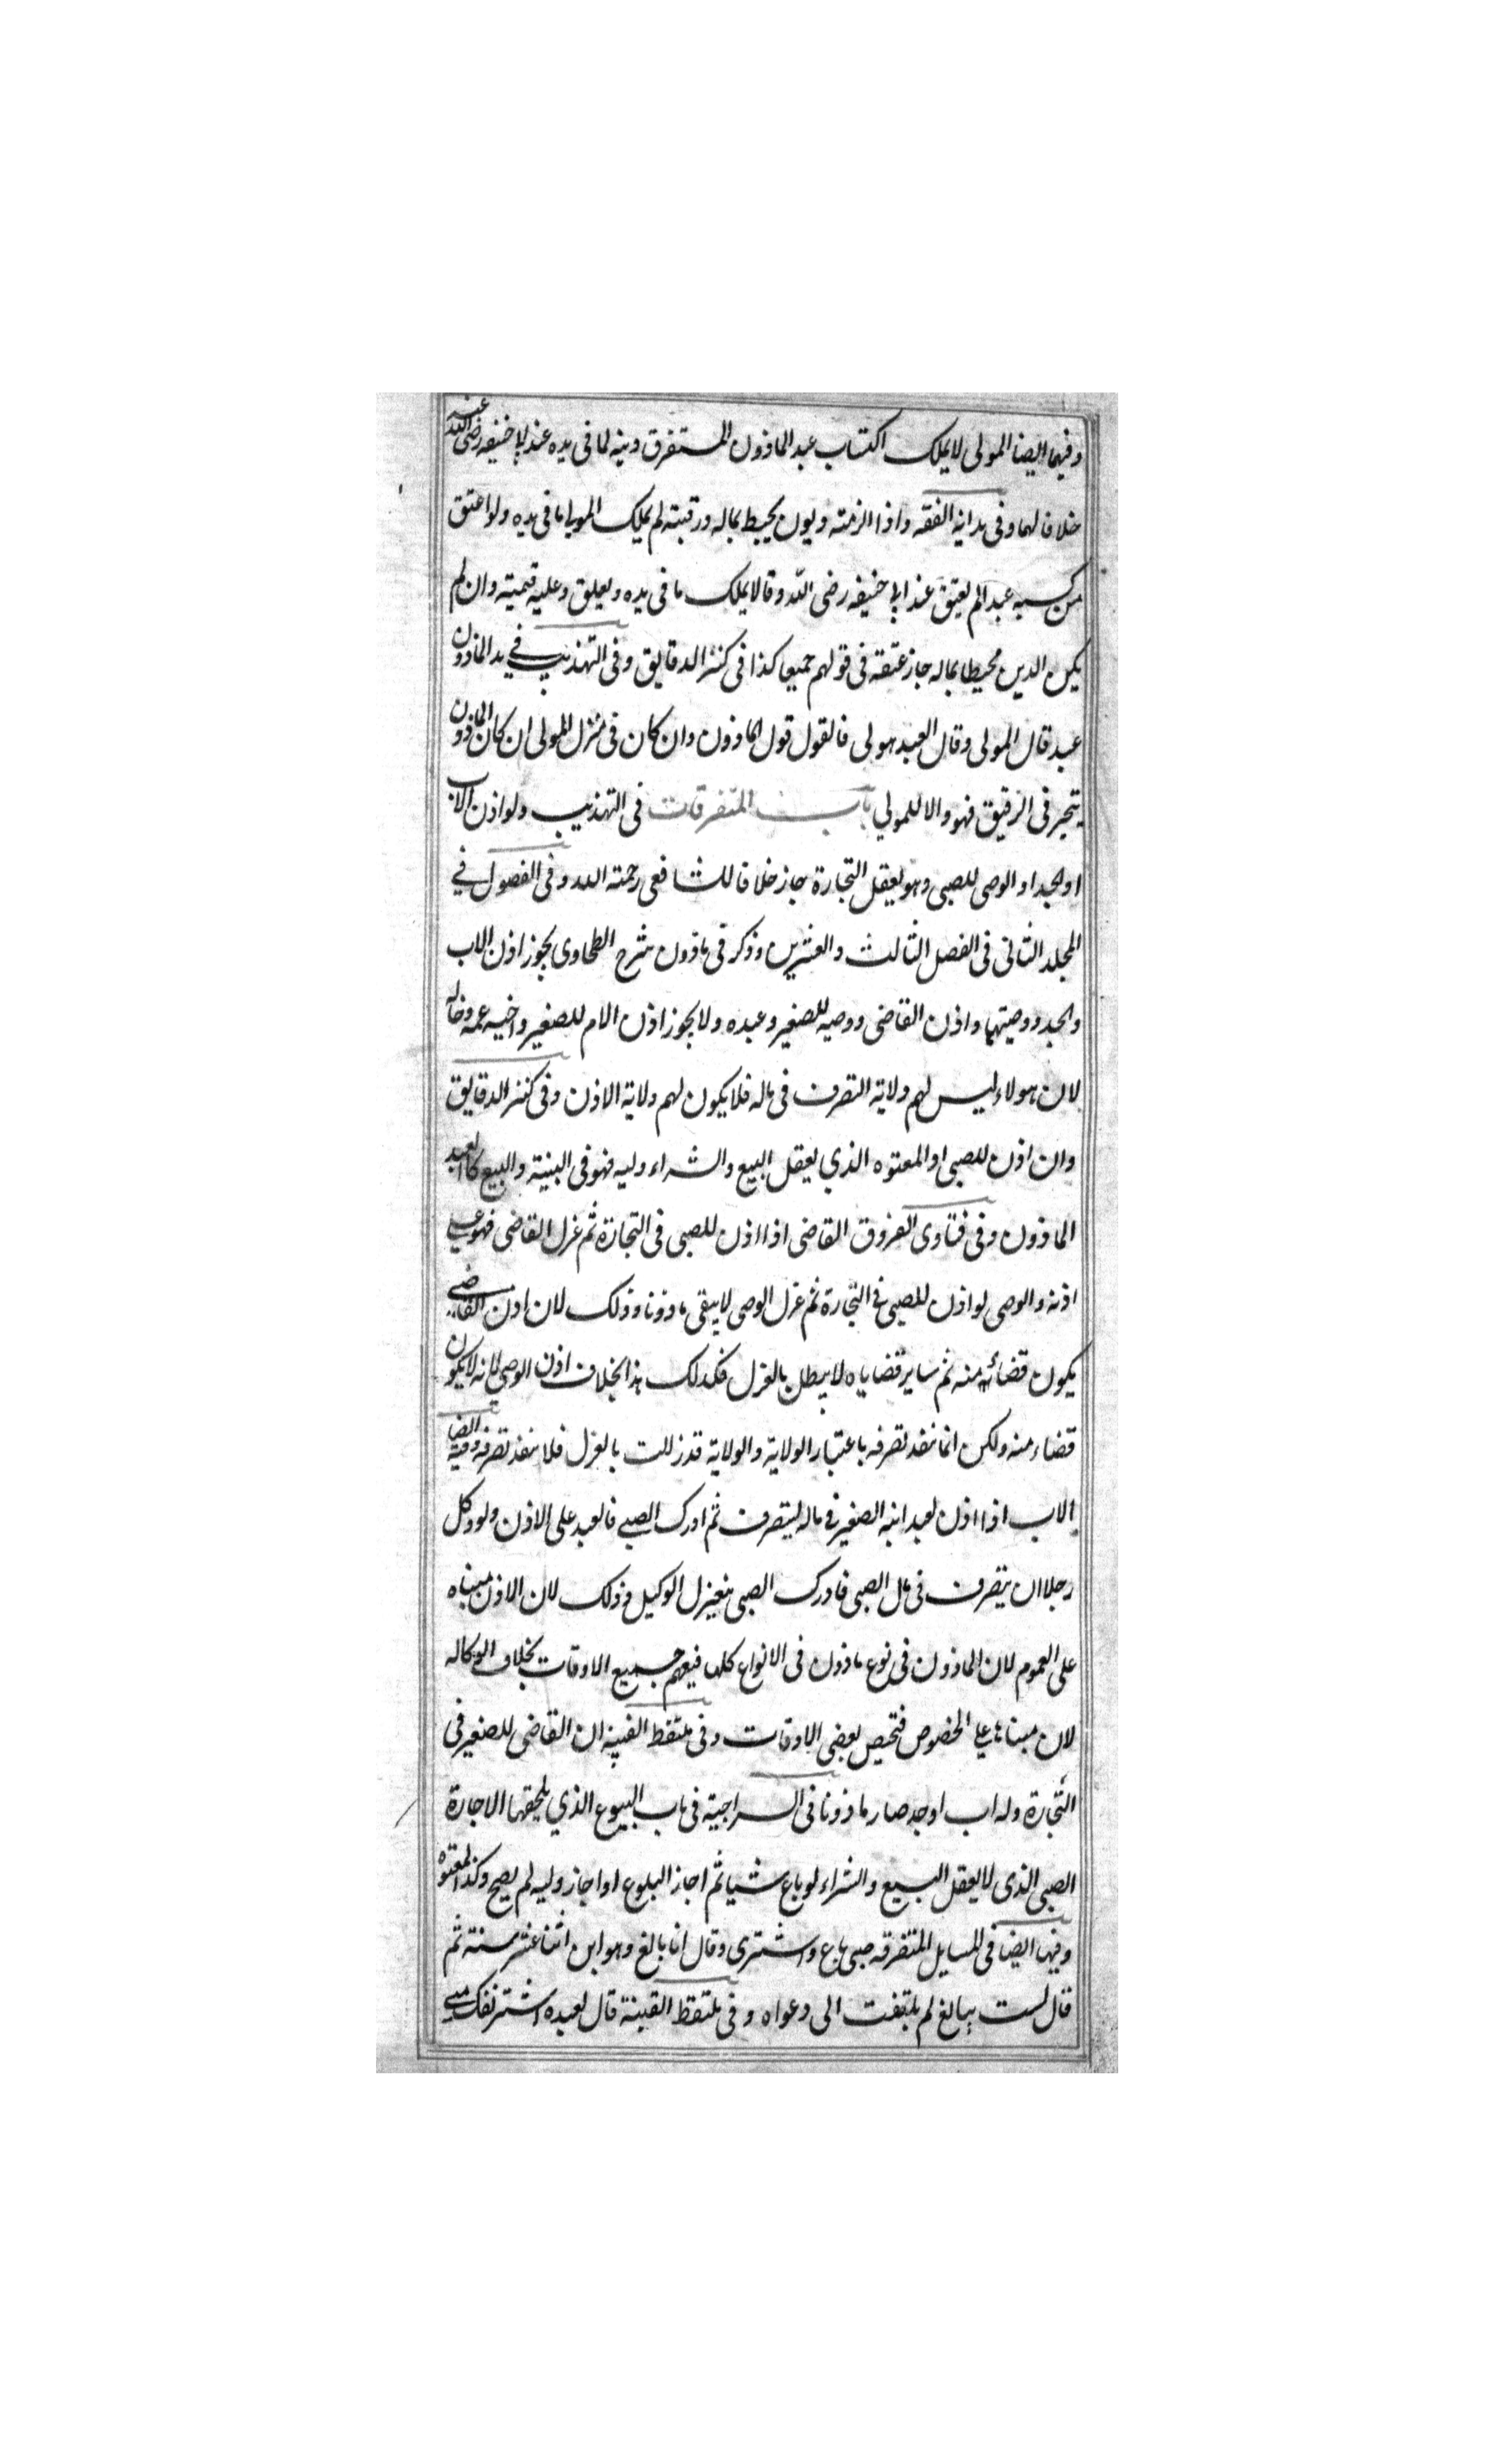 وفيها ايضا المولى لا يملك اكتساب عبد الماذون المستغرق دينه لما في يده عند ابا حنيفه رضى الله عنه
خلافا لهما وفى بداية الفقه واذا الزمته ديون يحيط بماله ورقبته لم يملك المولى ما في يده ولو اعتق
من كسبه عبدا لم يعتق عند ابي حنيفه رضى الله وقالا يملك ما في يده ويعتق وعليه قيمته وان لم
يكن الدين محيطا بماله جاز عتقه في قولهم جميعا كذا في كنز الدقايق وفى التهذيب في يد الماذون
عبد قال المولى وقال العبد هو لى فالقول قول الماذون وان كان في منزل المولى ان كان الماذون
يتجر فى الرقيق فهو والا للمولي باب المتفرقات فى التهذيب ولو اذن الاب
او الجد او الوصى للصبى وهو يعقل التجارة جاز خلافا للشافعى رحمة الله وفى الفصول في
المجلد الثانى فى الفصل الثالث والعشرين وذكر فى ماذون شرح الطحاوى يجوز اذن الاب
والجد ووصيتهما واذن القاضى ووصيه للصغير وعبده ولا يجوز اذن الام للصغير واخيه عمه وخاله
لان هولاء ليس لهم ولاية التصرف فى ماله فلا يكون لهم ولاية الاذن وفى كنز الدقايق
وان اذن للصبى او المعتوه الذي يعقل البيع والشراء وليه فهو فى البنية والبيع كالعبد
الماذون وفى فتاوى الفروق القاضى اذا اذن للصبى فى التجارة ثم عزل القاضى فهو على
اذنه والوصى لو اذن للصبى في التجارة ثم عزل الوصى لا يبقى ماذونا وذلك لان اذن القاضي
يكون قضائه منه ثم ساير قضاياه لا يبطل بالعزل فكذلك هذا بخلاف اذن الوصي لانه لا يكون
قضاء منه ولكن انما نفذ تصرفه باعتبار الولاية والولاية قد زالت بالعزل فلا ينفذ تصرفه وفيه ايضا
الاب اذا اذن لعبد ابنه الصغير في ماله ليتصرف ثم ادرك الصبي فالعبد على الاذن ولو وكل
رجلا ان يتصرف فى مال الصبى فادرك الصبى ينعزل الوكيل وذلك لان الاذن مبناه
على العموم لان الماذون فى نوع ماذون فى الانواع كلها فيعم جميع الاوقات بخلاف الوكاله
لان مبناها على الخصوص فتخص بعض الاوقات وفى ملتقط القنيه ان القاضى للصغير فى
التجارة وله اب او جد صار ماذونا فى السراجية فى باب البيوع الذي يلحقها الاجازة
الصبى الذى لا يعقل البيع والشراء لو باع شيا ثم اجاز البلوغ او اجاز وليه لم يصح وكذا المعتوه
وفيها ايضا فى المسايل المتفرقه صبى باع واشترى وقال انا بالغ وهو ابن اثنا عشر سنة ثم
قال لست ببالغ لم يلتفت الى دعواه وفى ملتقط القينة قال لعبده اشتر نفسك مني